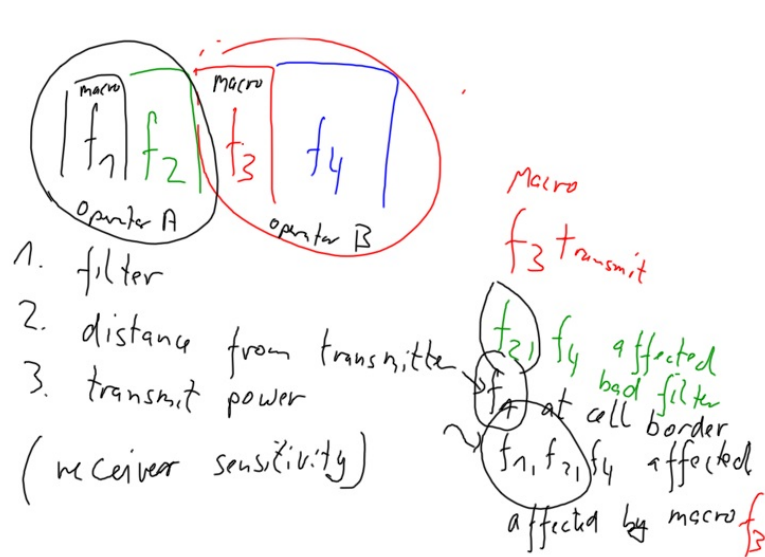 macro
macro
f1 f2 f3 f4
operator A
operator B
1. filter
2. distance from transmitter
3. transmit power
(receiver sensitivity)
Macro
f3 transmit
f2, f4 affected
bad filter
at cell border
f1, f2, f4 affected
affected by macro f3